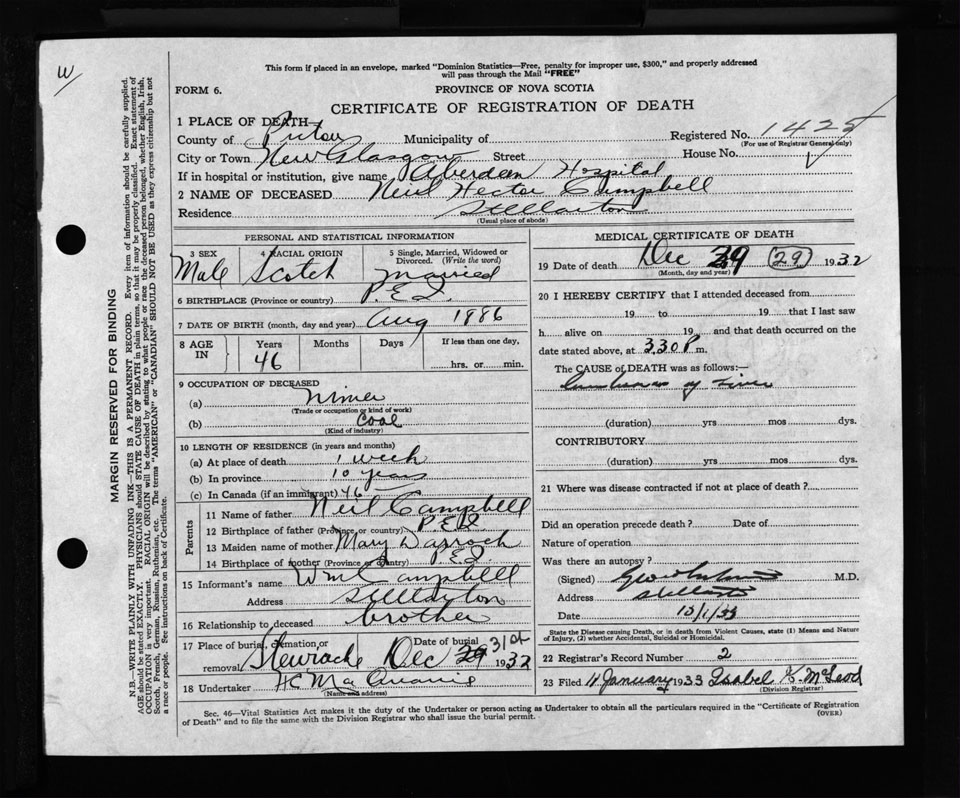 W
This form if placed in an envelope, marked "Dominion Statistics—Free, penalty for improper use, $300," and properly addressed
will pass through the Mail "FREE"
FORM 6.
PROVINCE OF NOVA SCOTIA
CERTIFICATE OF REGISTRATION OF DEATH
1 PLACE OF DEATH
County of Pictou Municipality of Registered No. 1425
(For use of Registrar General only)
City or Town New Glasgow Street House No.
If in hospital or institution, give name Aberdeen Hospital
2 NAME OF DECEASED Neil Hector Campbell
Residence Stellarton
(Usual place of abode)
PERSONAL AND STATISTICAL INFORMATION
3 SEX Male
4 RACIAL ORIGIN Scotch
5 Single, Married, Widowed or
Divorced. (Write the word)
Married
6 BIRTHPLACE (Province or country) P.E.I.
7 DATE OF BIRTH (month, day and year) Aug 1886
8 AGE IN Years 46 Months Days If less than one day,
hrs. or min.
9 OCCUPATION OF DECEASED
(a) Miner
(Trade or occupation or kind of work)
(b) Coal
(Kind of industry)
10 LENGTH OF RESIDENCE (in years and months)
(a) At place of death 1 week
(b) In province 10 years
(c) In Canada (if an immigrant) 46
Parents
11 Name of father Neil Campbell
12 Birthplace of father (Province or country) P.E.I
13 Maiden name of mother Mary Darroch
14 Birthplace of mother (Province or country) P.E.I
15 Informant's name Wm Campbell
Address Stellarton
16 Relationship to deceased brother
17 Place of burial, cremation or removal Date of burial Dec 29 31st 1932
18 Undertaker
(Name and address)
MEDICAL CERTIFICATE OF DEATH
19 Date of death Dec 29 (29) 1932
(Month, day and year)
20 I HEREBY CERTIFY that I attended deceased from
19 to 19 that I last saw
h alive on 19 and that death occurred on the
date stated above, at 3.30 P m.
The CAUSE OF DEATH was as follows:—
of Liver
(duration) yrs mos dys.
CONTRIBUTORY
(duration) yrs mos dys.
21 Where was disease contracted if not at place of death?
Did an operation precede death? Date of
Nature of operation
Was there an autopsy?
(Signed) M.D.
Address Stellarton
Date 10/1/33
State the Disease causing Death, or in death from Violent Causes, state (1) Means and Nature
of Injury, (2) whether Accidental, Suicidal or Homicidal.
22 Registrar's Record Number 2
23 Filed 11 January 1933 Isabel K. McLeod
(Division Registrar)
Sec. 46—Vital Statistics Act makes it the duty of the Undertaker or person acting as Undertaker to obtain all the particulars required in the "Certificate of Registration
of Death" and to file the same with the Division Registrar who shall issue the burial permit.
(OVER)
MARGIN RESERVED FOR BINDING
N.B.—WRITE PLAINLY WITH UNFADING INK—THIS IS A PERMANENT RECORD. Every item of information should be carefully supplied.
AGE should be stated EXACTLY. PHYSICIANS should STATE CAUSE OF DEATH in plain terms, so that it may be properly classified. Exact statement of
OCCUPATION is very important. RACIAL ORIGIN will be described by stating to what people or race the deceased person belonged, whether English, Irish,
Scotch, French, German, Russian, Ruthenian, etc. The terms "AMERICAN" or "CANADIAN" SHOULD NOT BE USED as they express citizenship but not
a race or people. See instructions on back of Certificate.